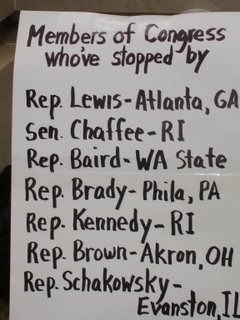 Members of Congress
who've stopped by
Rep. Lewis-Atlanta, GA
Sen. Chaffee-RI
Rep. Baird-WA State
Rep. Brady-Phila, PA
Rep. Kennedy-RI
Rep. Brown-Akron, OH
Rep. Schakowsky-
Evanston, IL